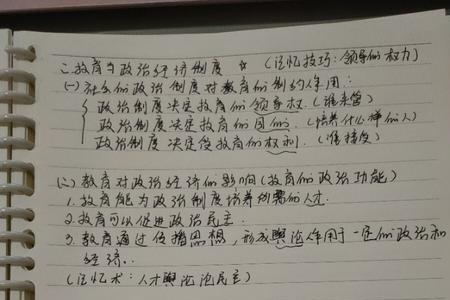 二.教育与政治经济制度 ☆ (记忆技巧:领导的权力)
(一)社会的政治制度对教育的制约作用:
政治制度决定教育的领导权.(谁来管)
政治制度决定教育的目的.(培养什么样的人)
政治制度决定受教育的权利.(谁接受)
(二)教育对政治经济的影响(教育的政治功能)
1.教育能为政治制度培养所需的人才.
2.教育可以促进政治民主.
3.教育通过传播思想,形成舆论作用于一定的政治和
经济..
(记忆术:人才舆论沦民主)